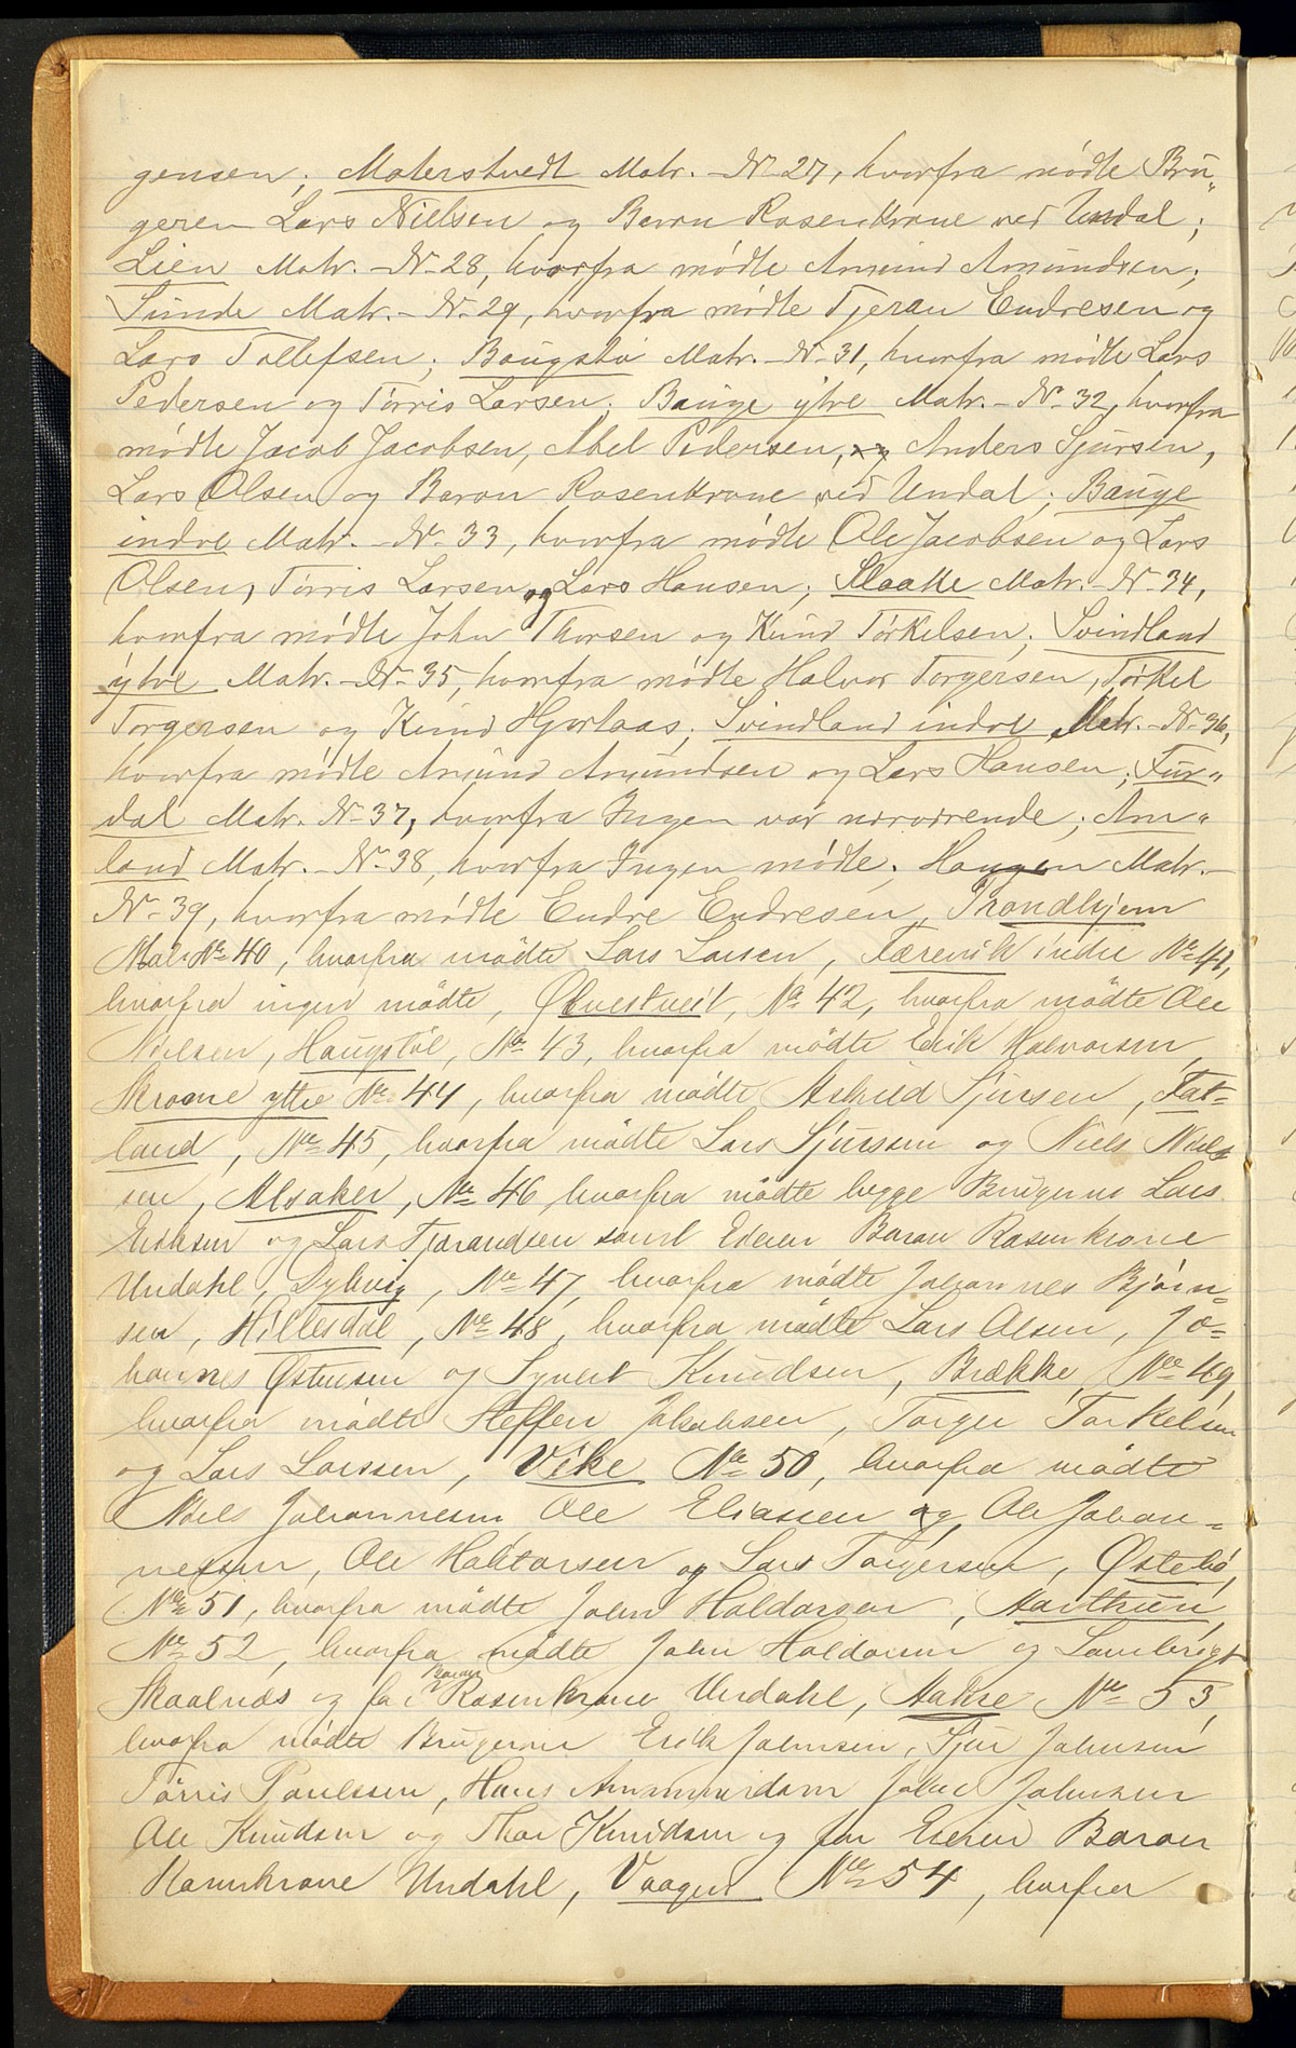 gensen; Materstvedt Matr. - No 27, hvorfra mødte Bru„
geren Lars Nielsen og Baron Rosenkrone ved Undal;
Lien Matr. - No 28, hvorfra mødte Amund Amundsen;
Sunde Matr. - No 29, hvorfra mødte Tjeran Endresen og
Lars Tollefsen; Baugstø Matr. - No 31, hvorfra mødte Lars
Pedersen og Tørris Larsen; Bauge ytre Matr. - No 32, hvorfra
mødte Jacob Jacobsen, Abel Pedersen, og Anders Sjursen,
Lars Olsen og Baron Rosenkrone ved Undal; Bauge
indre Matr. - No 33, hvorfra mødte Ole Jacobsen og Lars
Olsen, Tørris Larsen og Lars Hansen; Slaatte Matr. - No 34,
hvorfra mødte John Thorsen og Knud Tørkelsen; Svindland
ytre Matr. - No 35, hvorfra mødte Halvor Torgersen, Tørkel
Torgersen og Knud Hjortaas; Svindland indre Matr. - No 36,
hvorfra mødte Amund Amundsen og Lars Hansen; Fur„
dal Matr. No 37, hvorfra Ingen var nærværende; Am„
land Matr. - No 38, hvorfra Ingen mødte; Haugen Matr. -
No 39, hvorfra mødte Endre Endresen, Trondhjem
Matr No 40, hvorfra mødte Lars Larsen, Tærevik indre No 41,
hvorfra ingen mødte, Ølvestveit, No 42, hvorfra mødte Ole
Nielsen, Haugstøl, No 43, hvorfra mødte Erik Halvorsen,
Skrome ytre No 44, hvorfra mødte Askild Sjursen, Fat-
land, No 45, hvorfra mødte Lars Sjurssen og Niels Niels
sen, Alsaker, No 46 hvorfra mødte begge Brugerne Lars
Eriksen og Lars Tjerandsen samt Eieren Baron Rosenkrone
Undahl, Dybvig, No 47, hvorfra mødte Johannes Bjørn-
sen, Hillesdal, No 48, hvorfra mødte Lars Olsen, Jo-
hannes Østensen og Syvert Knudsen, Brække, No 49,
hvorfra mødte Steffen Jakobsen, Torger Torkelsen
og Lars Larssen, Vike No 50, hvorfra mødte
Niels Johannesen, Ole Eliassen og Ole Johan-
nesen, Ole Haktorsen og Lars Torgersen, Østebø,
No 51, hvorfra mødte John Haldorsen, Aarthun
No 52, hvorfra mødte John Haldorsen og Lambrigt
Skaalnæs og for Baron Rosenkrone Undahl, Aakre No 53,
hvorfra mødte Brugerne Erik Johnsen, Sjur Johnsen
Tørris Poulssen, Hans Ammundsen John Johnsen
Ole Knudsen og Thor Knudsen og for Eieren Baron
Rosenkrone Undahl, Vaagen No 54, hvorfra